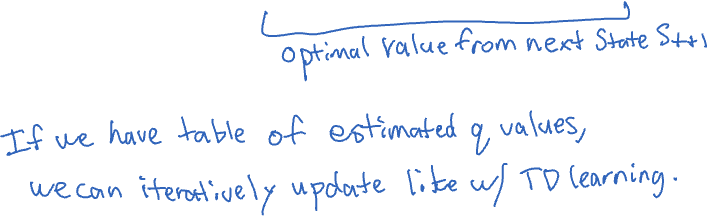 optimal value from next state St+1
If we have table of estimated q values,
we can iteratively update like w/ TD learning.